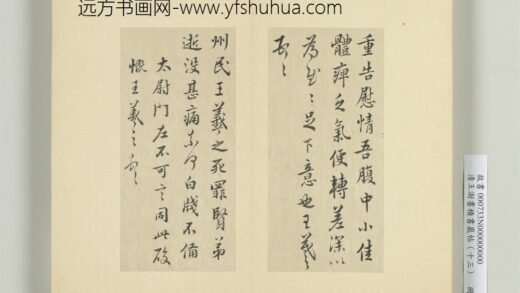 远方书画网-www.yfshuhua.com
重告慰情吾腹中小佳
體痺乏氣便轉差深以
為慰〻足下意也王羲
之〻
州民王羲之死罪賢弟
逝没甚痛奈何白牋不備
太尉門左不可言同此酸
慨王羲之
故書 000733N000000000
清王澍書積書巖帖(十三)